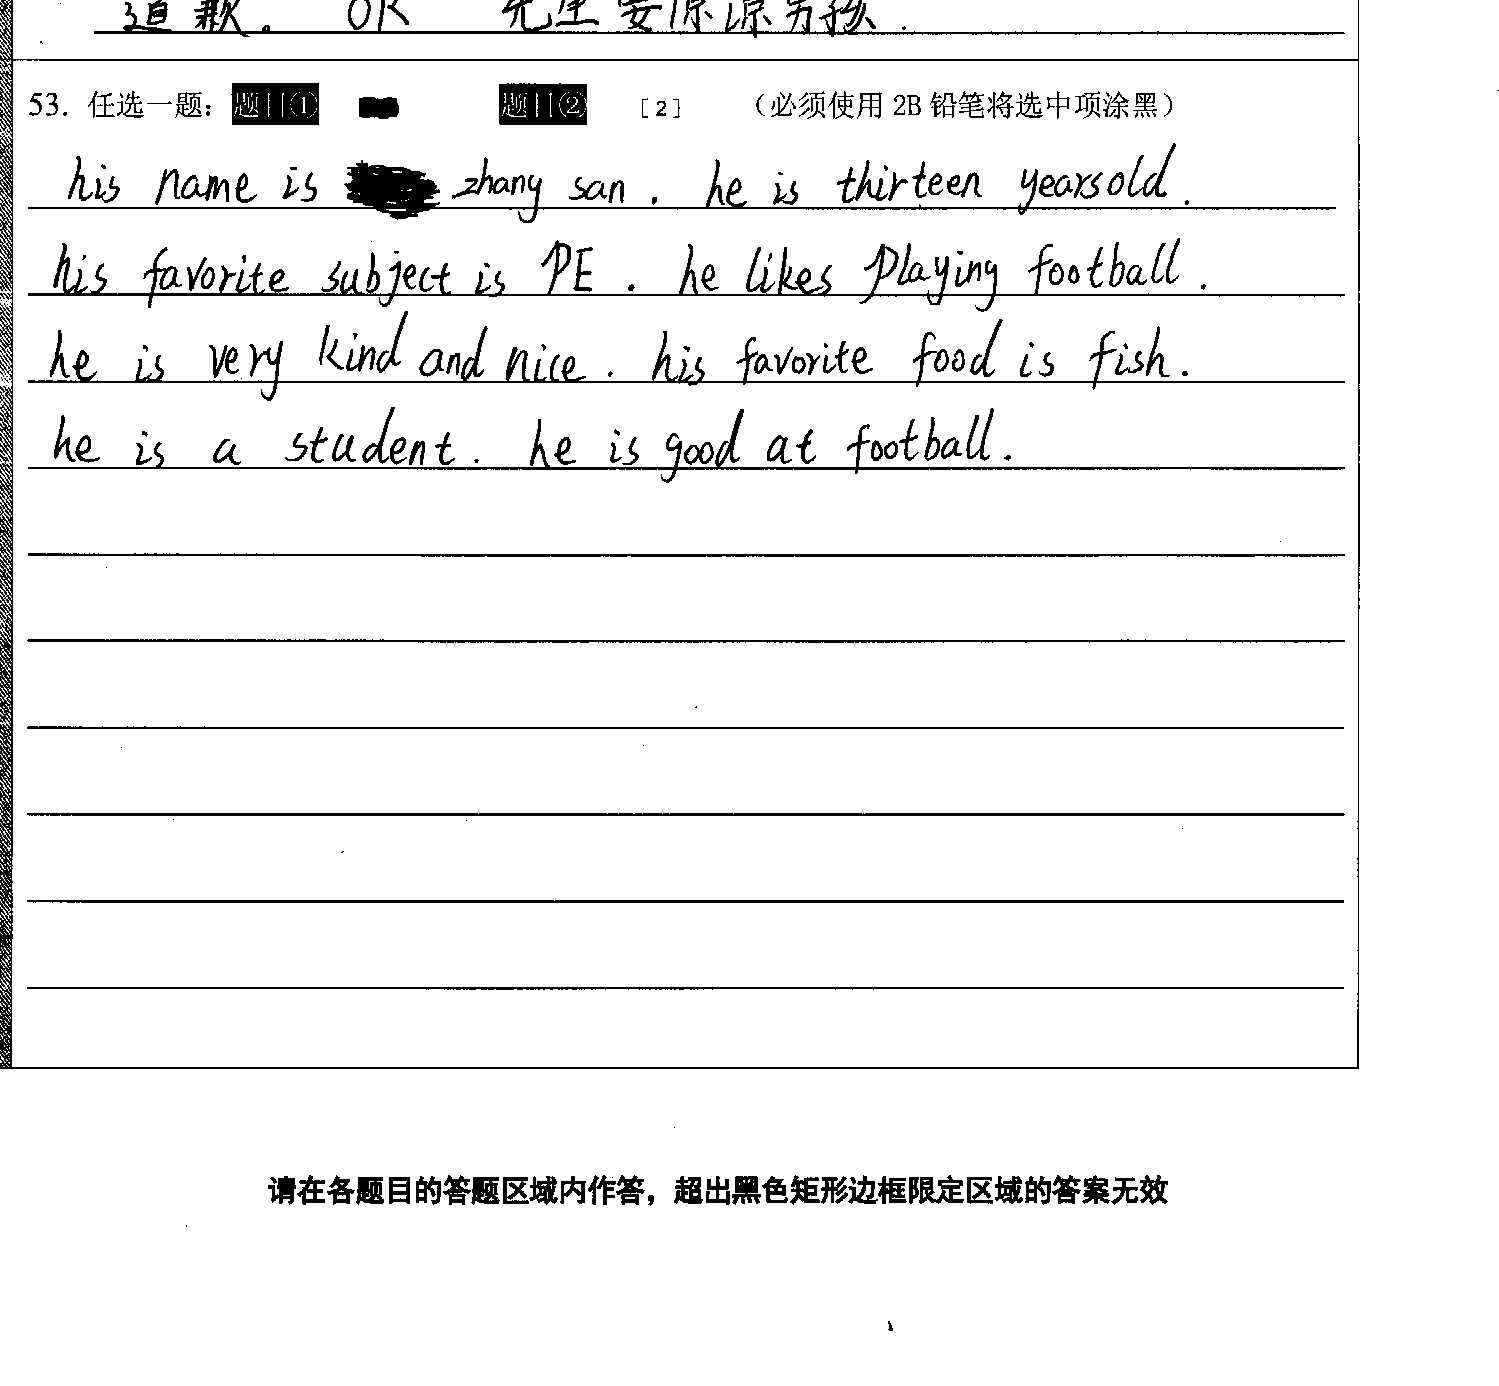 道歉。 OR 先生要原谅男孩.
53. 任选一题: 题目① 题目② [2] (必须使用 2B 铅笔将选中项涂黑)
his name is zhang san. he is thirteen yearsold.
his favorite subject is PE. he likes Playing football.
he is very kind and nice. his favorite food is fish.
he is a student. he is good at football.
请在各题目的答题区域内作答，超出黑色矩形边框限定区域的答案无效